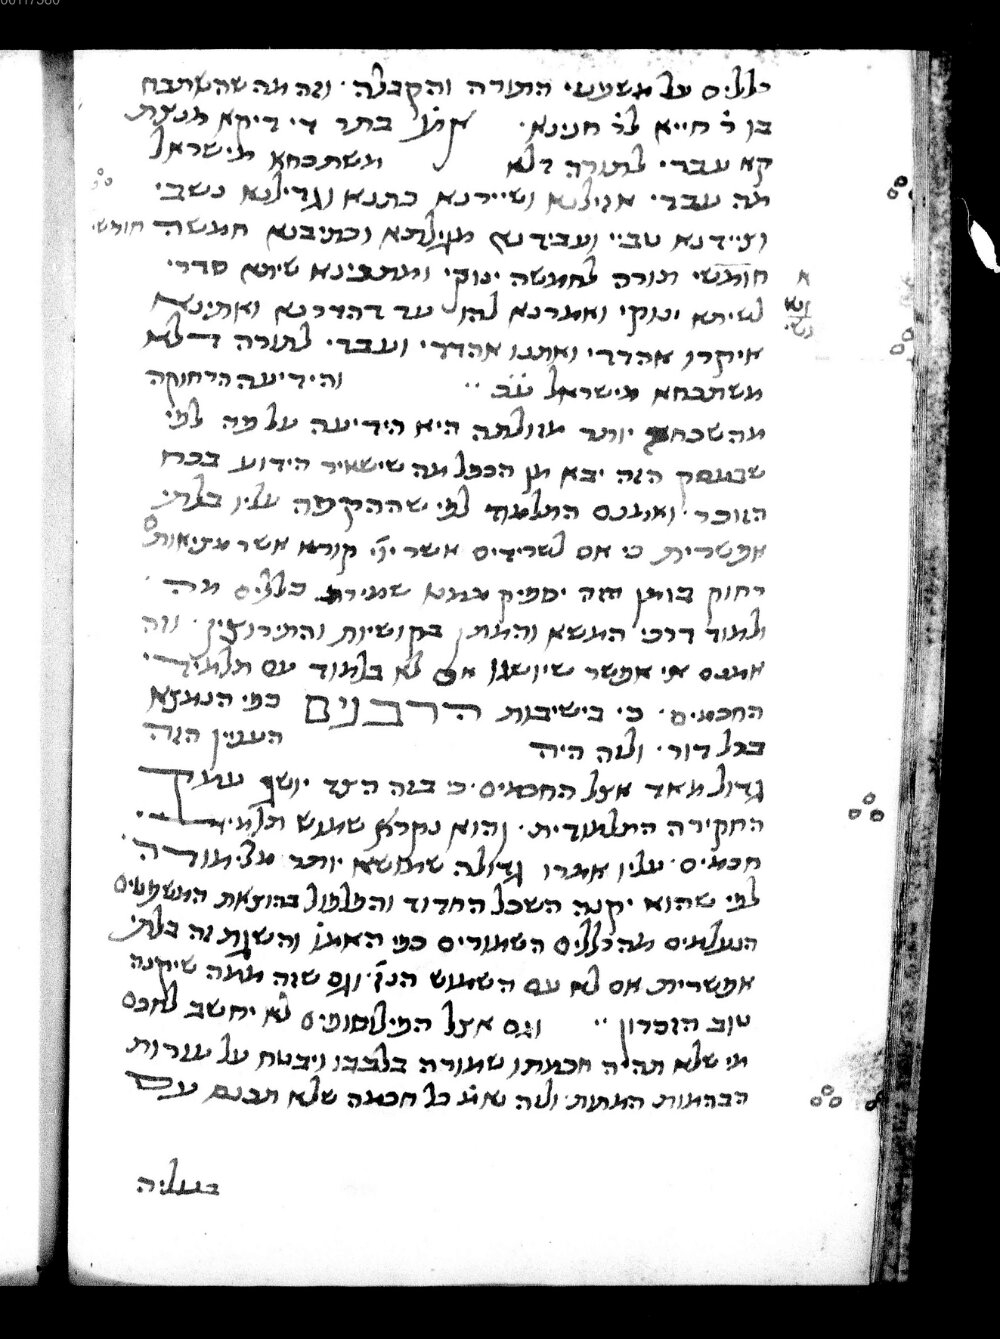 כוללים על משפטי התורה והקבלה. וזה מה שהשתבח
בן ר' חייא לר' חנינא.    אתו בתר די דיקא מנצת
קא עבדי לתורה דלא    תשתכחא מישראל
מה עבדי אזילנא ושיירנא כתנא וגדילנא נשבי
וציידנא טביי ועבידנא מגילתא וכתיבנא חמשה חומשי
חומשי תורה לחמשה ינוקי ומתנינא שיתא סדרי
לשיתא ינוקי ואמרנא להו עד דהדרנא ואתינא
איקרו אהדדי ואתנו אהדדי ועבדי לתורה דלא
משתכחא מישראל ע"כ    והידיעה הרחוקה
מהשכחה יותר מזולתה היא הידיעה על פה לפי
שבעסק הזה יבא מן הכפל מה שישאיר הידוע בכח
הזוכר ואמנם התלמוד לפי שההקפה עליו בלתי
אפשרית כי אם לשרידים אשר יי' קורא אשר מציאות
רחוק בזמן הזה יספיק בנא שמירת כללים מה
ולמוד דרכי המשא והמתן בקושיות והתירוצין. וזה
אמנם אי אפשר שיושגו אם לא בלמוד עם תלמידי
החכמים. כי בישיבות הרבנים כפי הנמצא
בכל דור. ולזה היה    הענין הזה
גדול מאד אצל החכמים. כי בזה הצד יושג עומק
החקירה התלמודית. והוא נקרא שמוש תלמידי
חכמים. עליו אמרו גדולה שמושא יותר מלימודה
לפי שהוא יקנה השכל החדוד והפלפול בהוצאת המשפטים
הנעלמים מהכללים השמורים כפי האמת והשגת זה בלתי
אפשרית אם לא עם השמוש הנז'. וגם שזה ממה שיקנה
טוב הזכרון    וגם אצל הפילוסופים לא יחשב לחכם
מי שלא תהיה חכמתו שמורה בלבבו ויבטח על עורות
הבהמות המתות. ולזה אמ' כל חכמה שלא תכנס עם
בעליה
א